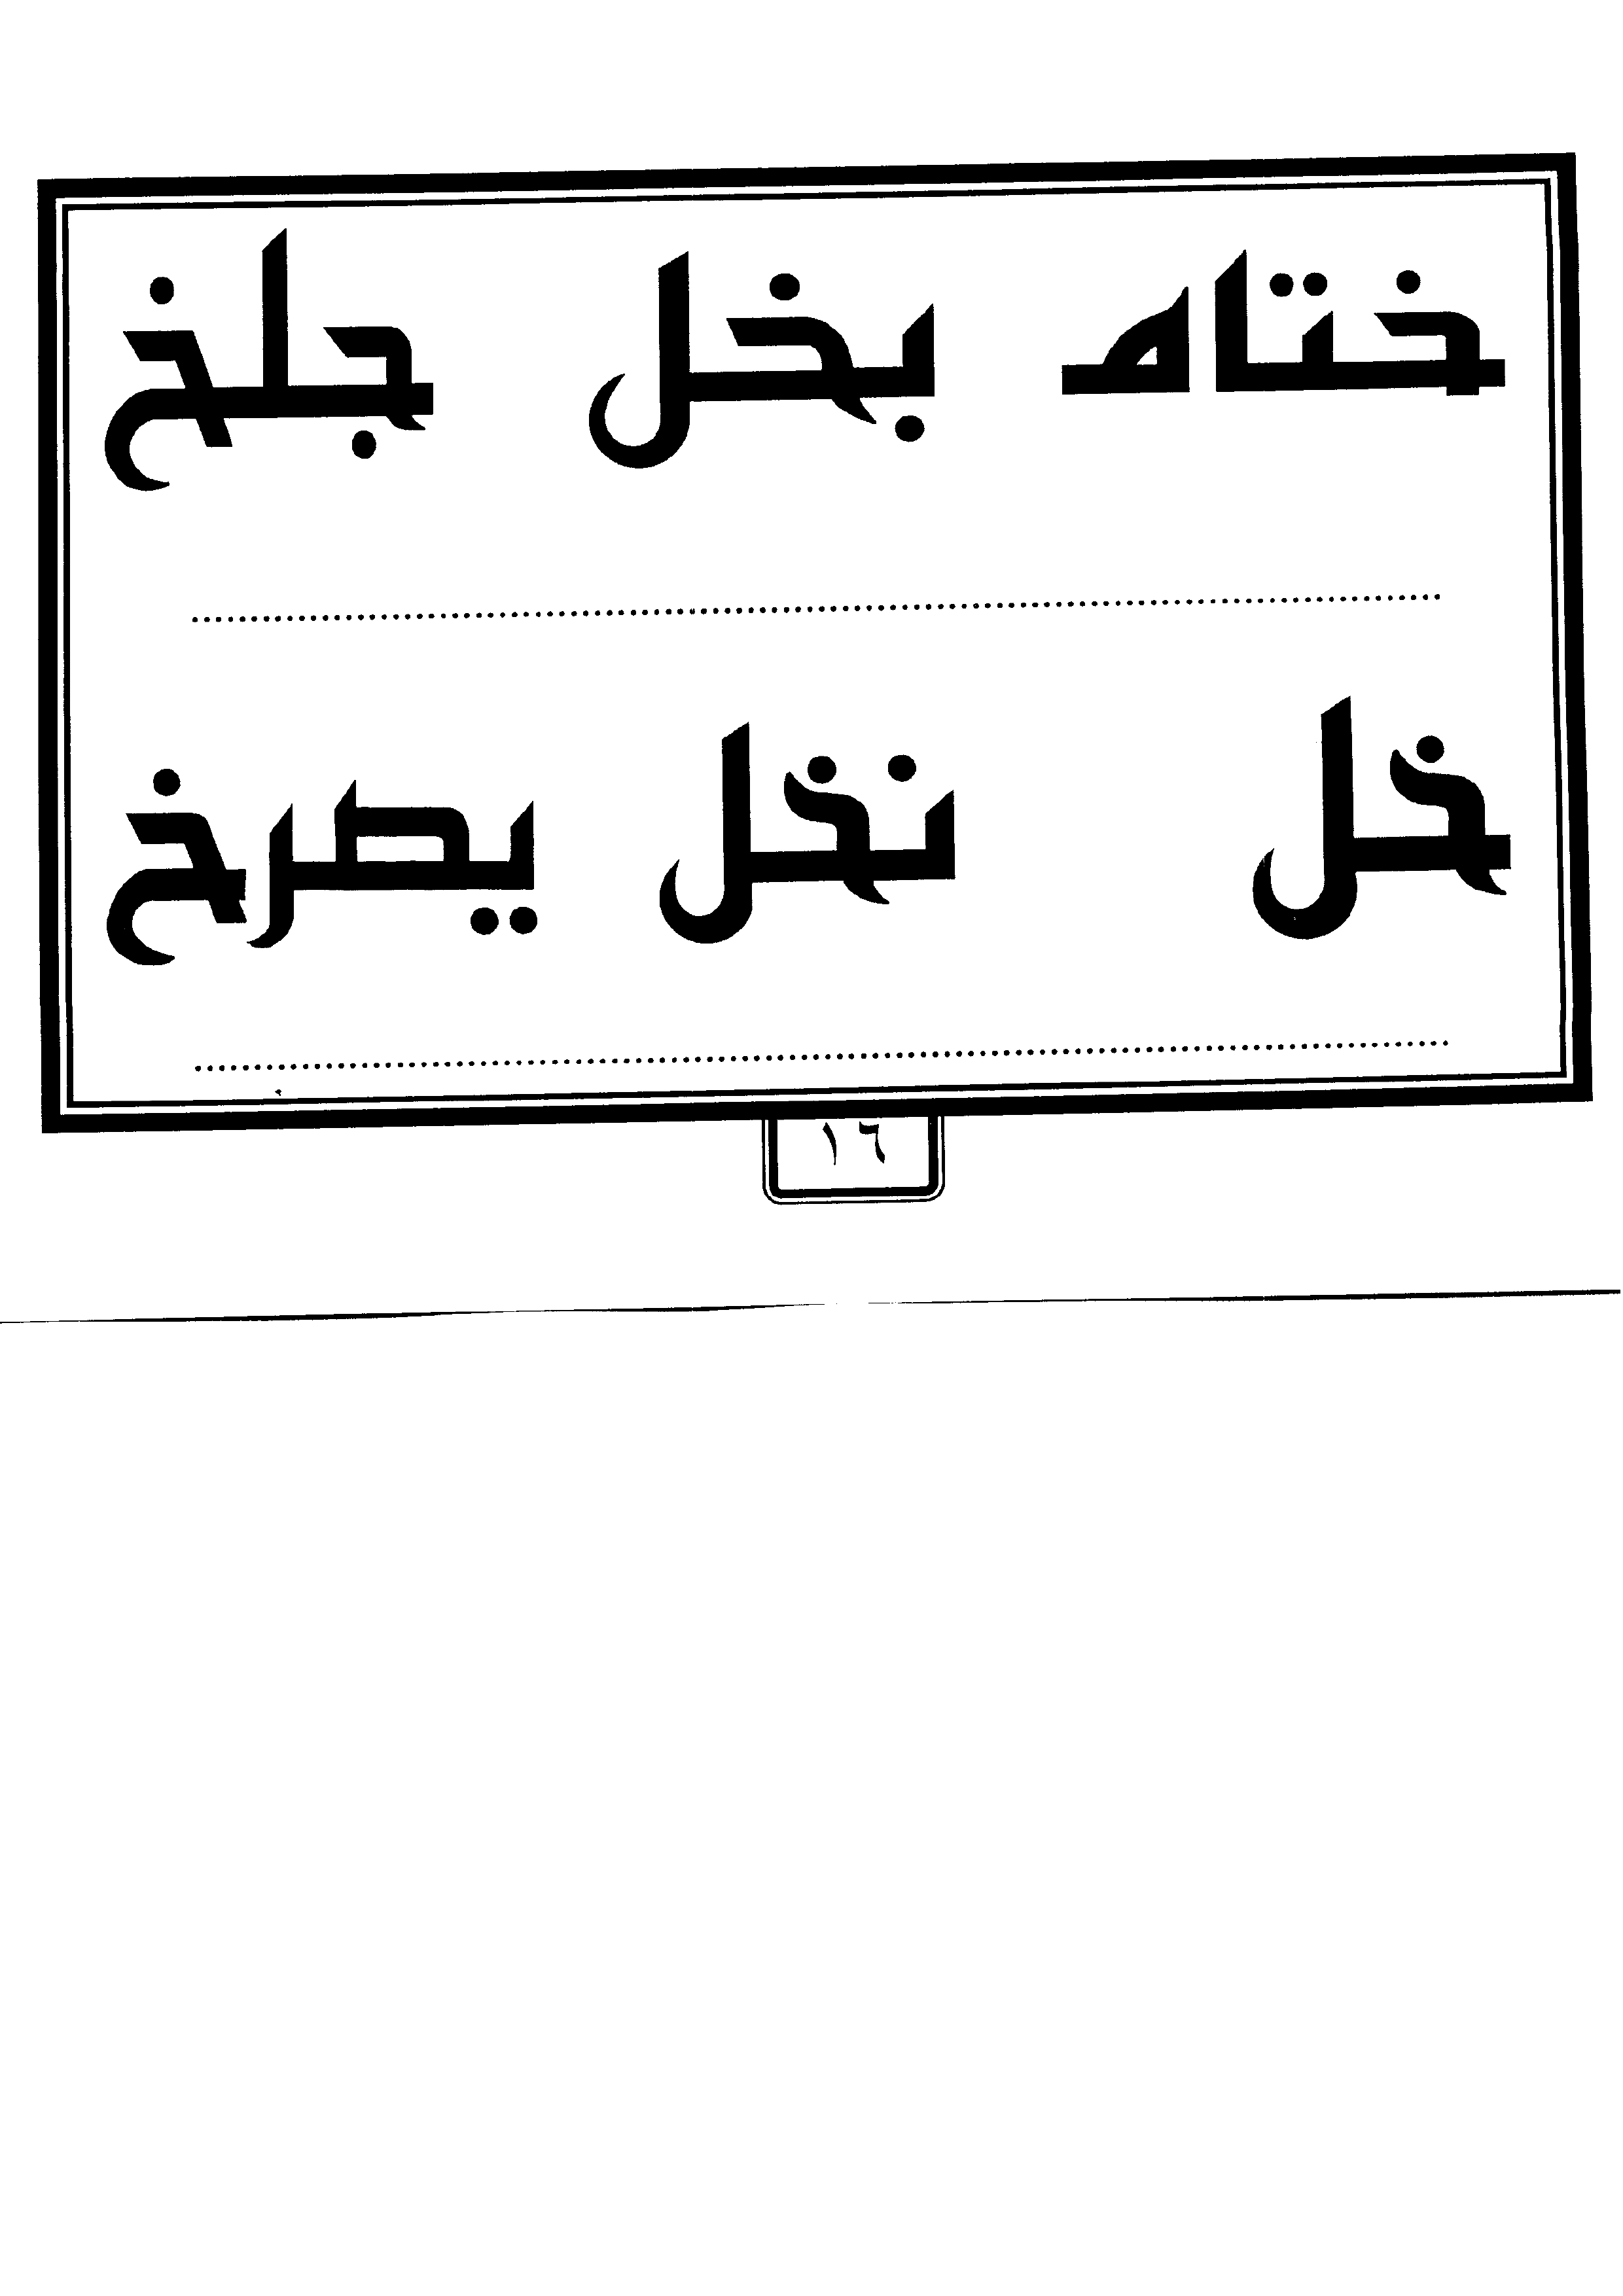 ختام بخل جلخ
خل نخل يصرخ
١٦